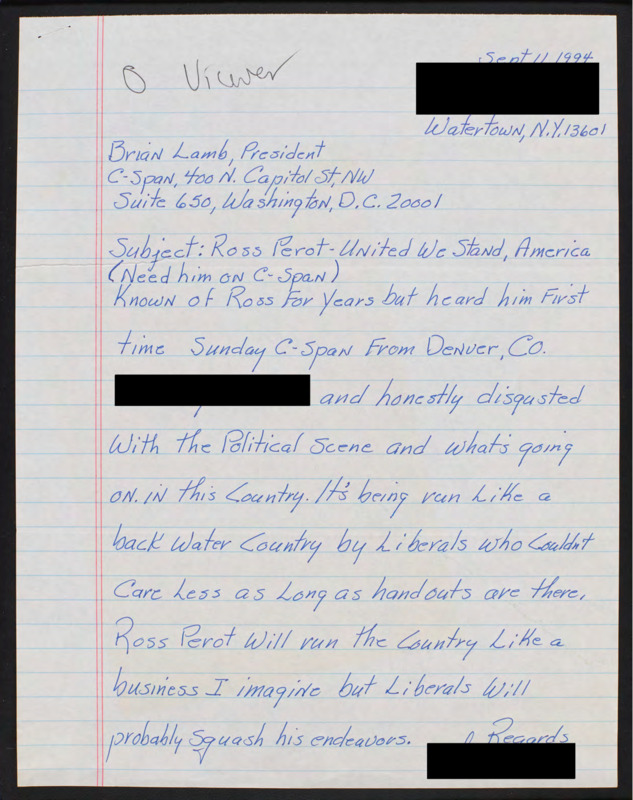 Viewer
Sept 11 1994
Watertown, N.Y. 13601
Brian Lamb, President
C-Span, 400 N. Capitol St, NW
Suite 650, Washington, D.C. 20001
Subject: Ross Perot - United We Stand, America
(Need him on C-Span)
Known of Ross For years but heard him First
time Sunday C-Span From Denver, CO.
and honestly disgusted
With the Political Scene and what's going
on. in this Country. It's being run Like a
back Water Country by Liberals who Couldn't
Care Less as Long as handouts are there.
Ross Perot Will run the Country Like a
business I imagine but Liberals Will
probably Squash his endeavors.
Regards